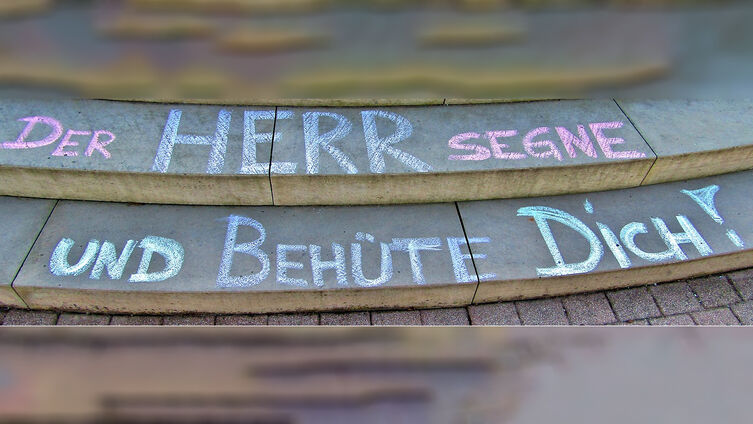 DER HERR SEGNE
UND BEHÜTE DICH!